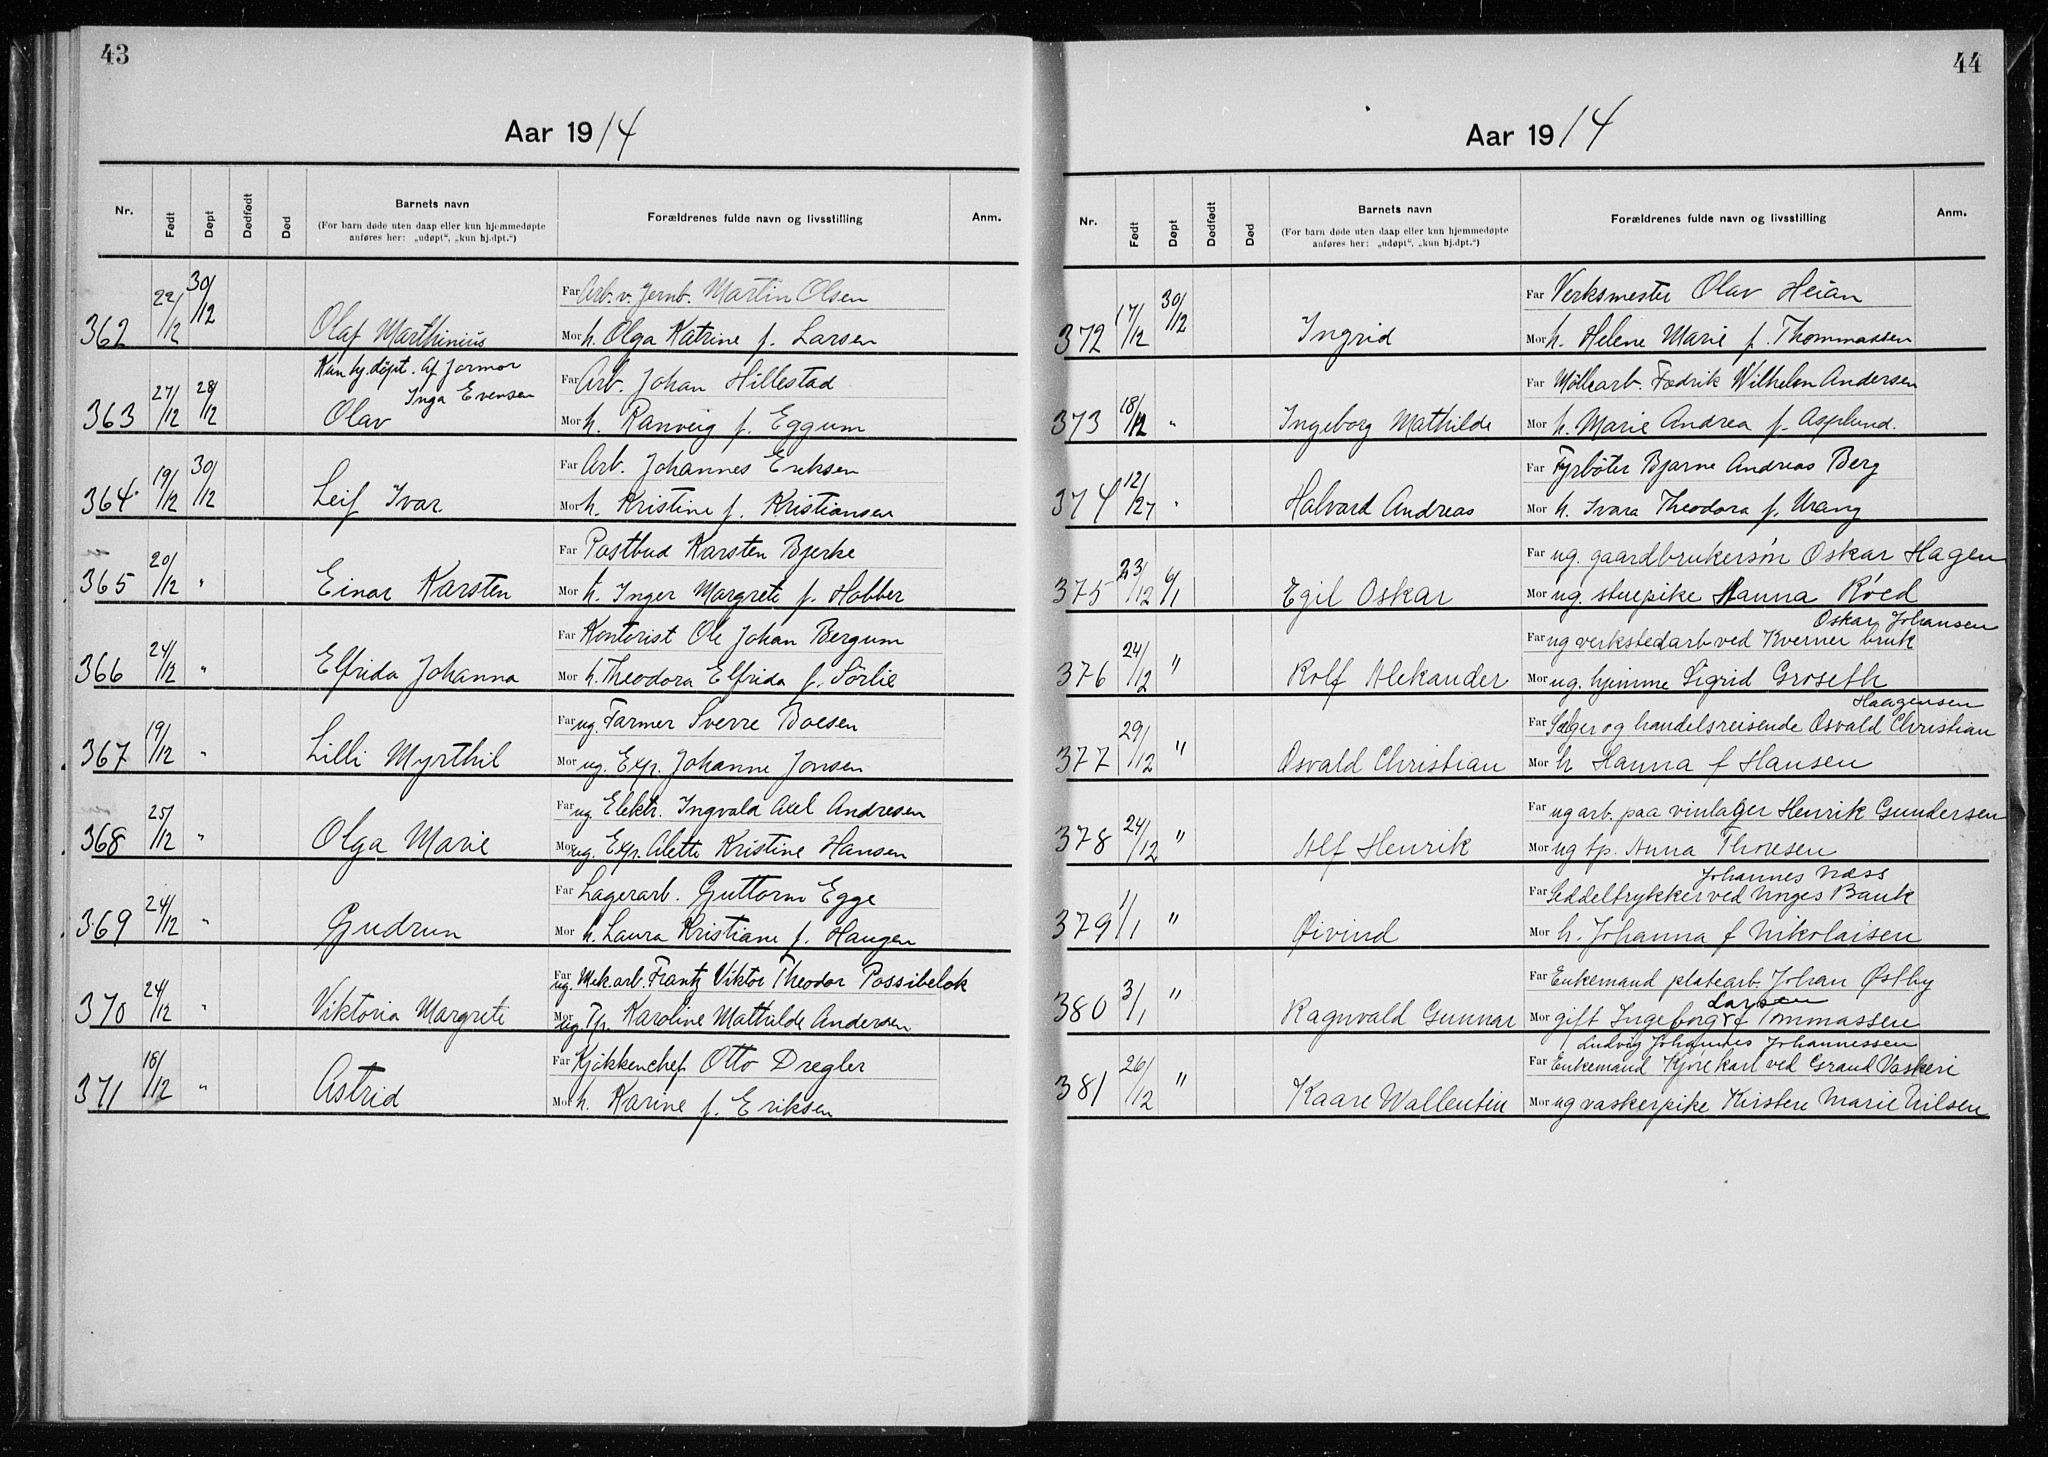 43
Aar 1914
Nr. Født Døpt Dødfødt Død Barnets navn Forældrenes fulde navn og livsstilling Anm.
(For barn døde uten daap eller kun hjemmedøpte
anføres her: „udøpt“, „kun hj.dpt.“)
Far Arb. v. Jernb. Martin Olsen
362 22/12 30/12 Olaf Marthinius Mor h. Olga Katrine f. Larsen
Kun hj. døpt. af Jormor
Inga Evensen
Far Arb. Johan Hillestad
363 27/12 28/12 Olav Mor h. Ranveig f. Eggum
Far Arb. Johannes Eriksen
364 19/12 30/12 Leif Ivar Mor h. Kristine f. Kristiansen
Far Postbud Karsten Bjerke
365 20/12 " Einar Karsten Mor h. Inger Margrete f. Hobber
Far Kontorist Ole Johan Bergum
366 24/12 " Elfrida Johanna Mor h. Theodora Elfrida f. Sörlie
Far ug. Farmer Sverre Boesen
367 19/12 " Lilli Myrthil Mor ug. Exp. Johanne Jonsen
Far ug Elektr. Ingvald Axel Andresen
368 25/12 " Olga Marie Mor ug. Exp. Alette Kristine Hansen
Far Lagerarb. Guttorm Egge
369 24/12 " Gudrun Mor h. Laura Kristiane f. Haugen
Far ug. Mek. arb. Frantz Viktor Theodor Possibelok
370 24/12 " Viktoria Margrete Mor ug. Tp. Karoline Mathilde Andersen
Far Kjökkenchef Otto Dregler
371 18/12 " Astrid Mor h. Karine f. Eriksen
44
Aar 1914
Nr. Født Døpt Dødfødt Død Barnets navn Forældrenes fulde navn og livsstilling Anm.
(For barn døde uten daap eller kun hjemmedøpte
anføres her: „udøpt“, „kun hj.dpt.“)
Far Verksmester Olav Heian
372 17/12 30/12 Ingrid Mor h. Helene Marie f. Thommassen
Far Møllearb. Fredrik Wilhelm Andersen
373 18/12 " Ingeborg Mathilde Mor h. Marie Andrea f. Asplund.
Far Fyrbøter Bjarne Andreas Berg
374 12/127 " Halvard Andreas Mor h. Ivara Theodora f. Urang
Far ug. gaardbrukersøn Oskar Hagen
375 23/12 6/1 Egil Oskar Mor ug. stuepike Hanna Röed
Oskar Johansen
Far ug verkstedarb ved Kverner bruk
376 24/12 " Rolf Aleksander Mor ug. hjemme Sigrid Groseth
Haagensen
Far Sælger og handelsreisende Osvald Christian
377 29/12 " Osvald Christian Mor h Hanna f Hansen
Far ug arb. paa vinlager Henrik Gundersen
378 24/12 " Alf Henrik Mor ug tp. Anna Thoresen
Johannes Næss
Far Seddeltrykker ved Norges Bank
379 1/1 " Øivind Mor h. Johanna f Nikolaisen
Far Enkemand platearb. Johan Østby
Larsen
380 3/1 " Ragnvald Gunnar Mor gift Ingeborg f Tommassen
Ludvig Johannes Johannessen
Far Enkemand Kjørekarl ved Grand Vaskeri
381 26/12 " Kaare Wallentin Mor ug vaskerpike Kirsten Marie Nilsen